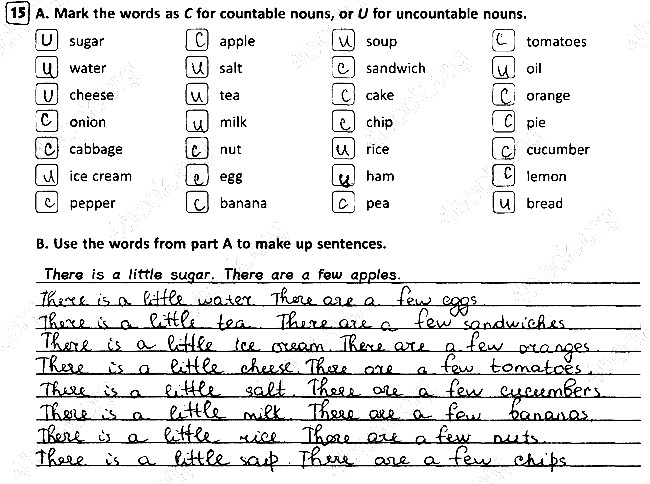 15 A. Mark the words as C for countable nouns, or U for uncountable nouns.
U sugar C apple U soup C tomatoes
U water U salt C sandwich U oil
U cheese U tea C cake C orange
C onion U milk C chip C pie
C cabbage C nut U rice C cucumber
U ice cream C egg U ham C lemon
C pepper C banana C pea U bread
B. Use the words from part A to make up sentences.
There is a little sugar. There are a few apples.
There is a little water. There are a few eggs.
There is a little tea. There are a few sandwiches.
There is a little ice cream. There are a few oranges.
There is a little cheese. There are a few tomatoes.
There is a little salt. There are a few cucumbers.
There is a little milk. There are a few bananas.
There is a little rice. There are a few nuts.
There is a little soup. There are a few chips